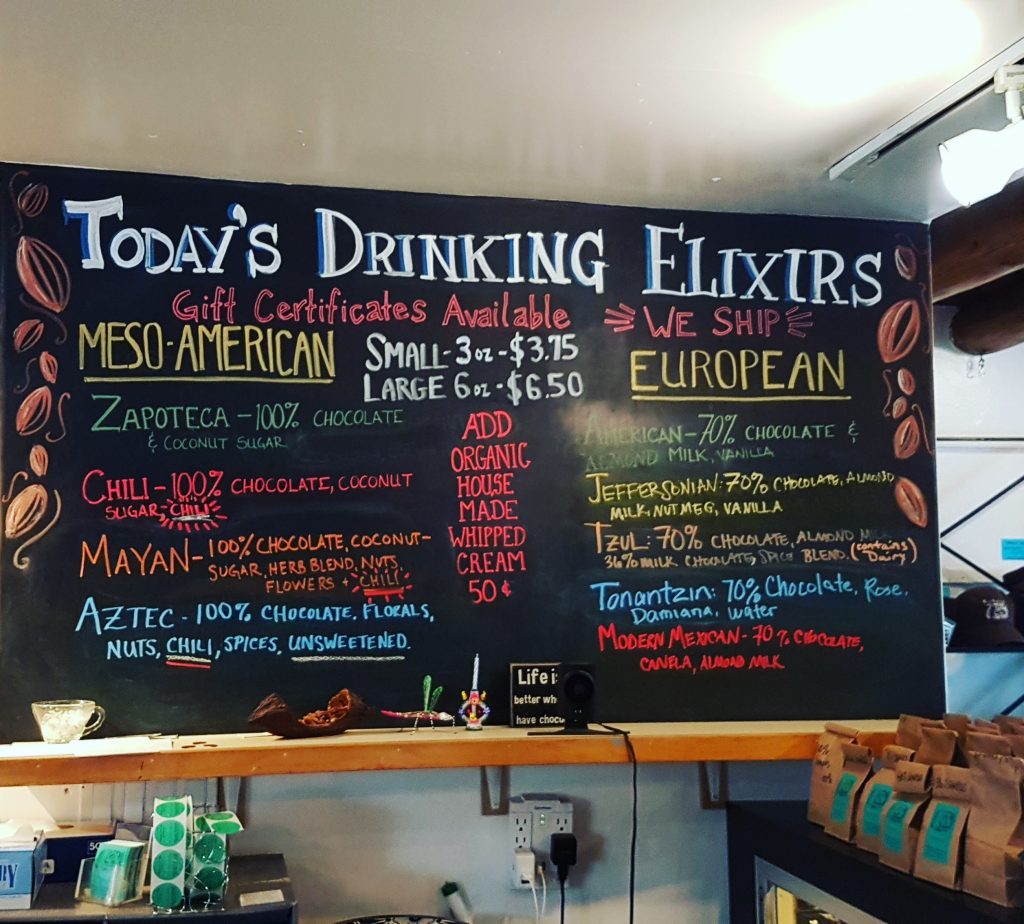 TODAY'S DRINKING ELIXIRS
Gift Certificates Available
WE SHIP
MESO-AMERICAN
SMALL-3oz-$3.75
LARGE 6oz-$6.50
EUROPEAN
ZAPOTECA-100% CHOCOLATE
& COCONUT SUGAR
CHILI-100% CHOCOLATE, COCONUT
SUGAR-CHILI
MAYAN-100% CHOCOLATE, COCONUT-
SUGAR, HERB BLEND, NUTS,
FLOWERS + CHILI
AZTEC-100% CHOCOLATE, FLORALS,
NUTS, CHILI, SPICES, UNSWEETENED.
ADD
ORGANIC
HOUSE
MADE
WHIPPED
CREAM
50¢
AMERICAN-70% CHOCOLATE &
ALMOND MILK, VANILLA
JEFFERSONIAN: 70% CHOCOLATE, ALMOND
MILK, NUTMEG, VANILLA
TZUL: 70% CHOCOLATE, ALMOND MILK
36% MILK CHOCOLATE, SPICE BLEND. (contains
Dairy)
Tonantzin: 70% Chocolate, Rose,
Damiana, Water
MODERN MEXICAN-70% CHOCOLATE,
CANELA, ALMOND MILK
Life is
better wh
have choco